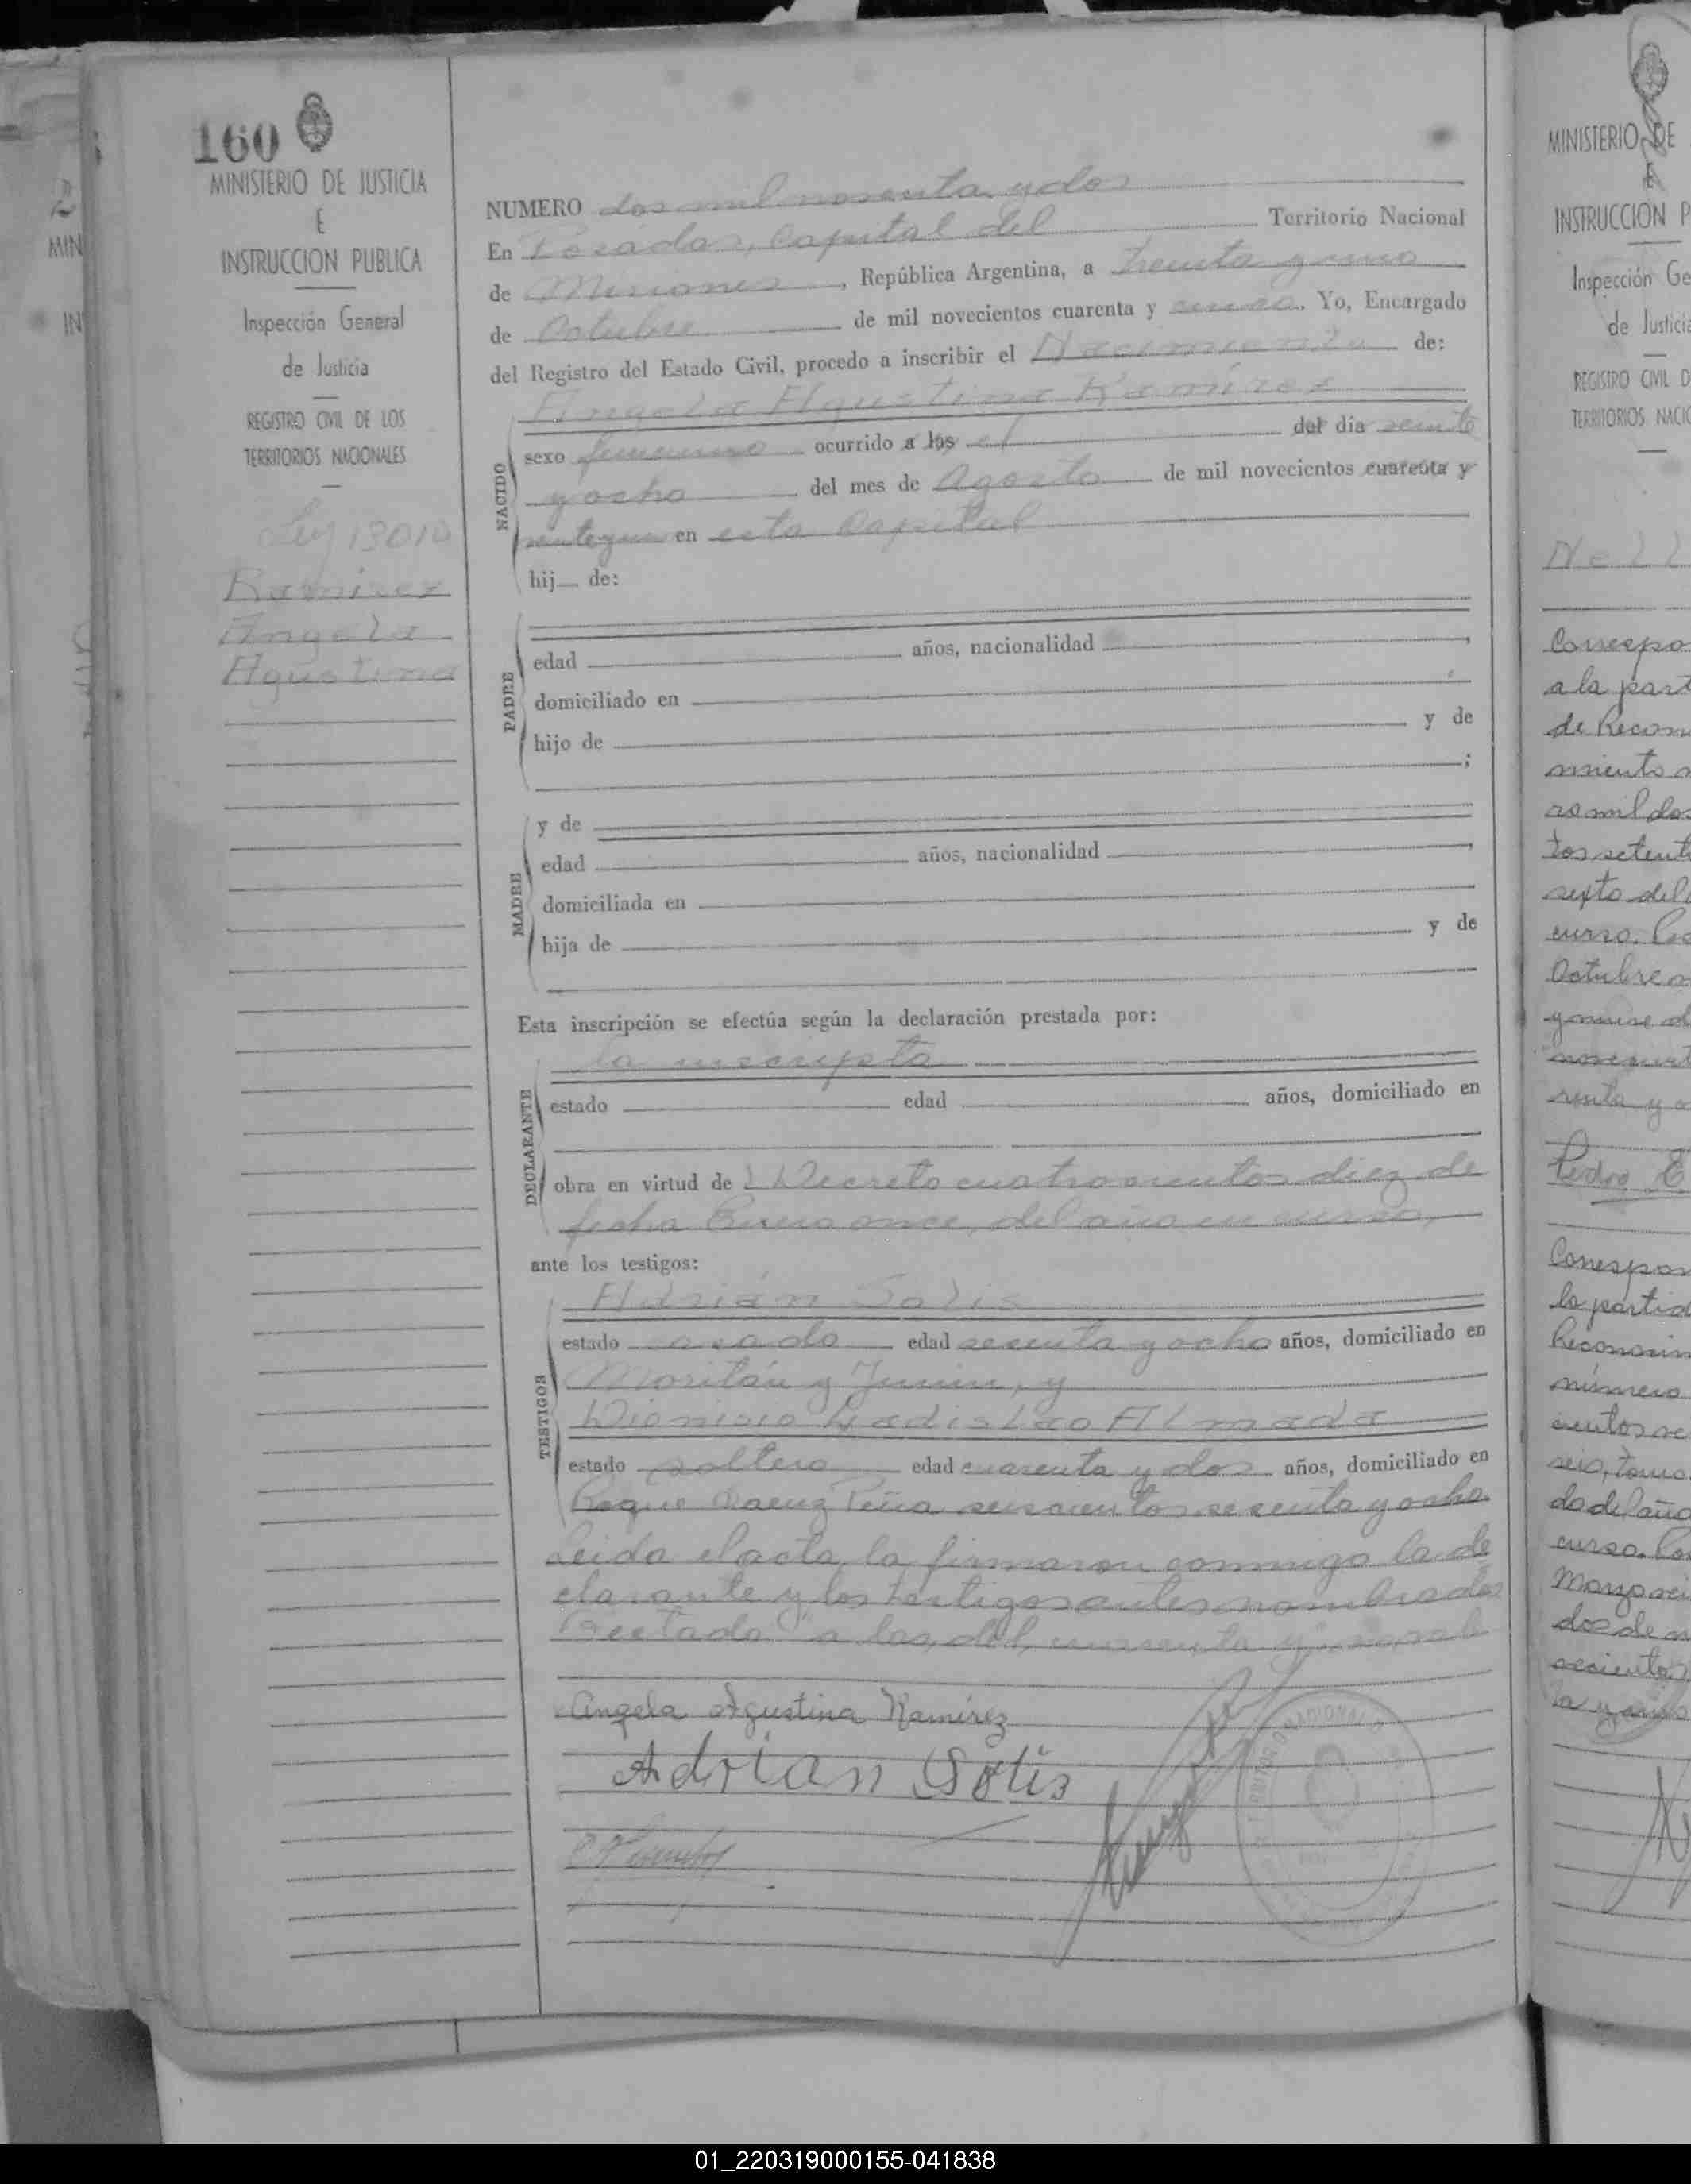 160
MINISTERIO DE JUSTICIA
E
INSTRUCCION PUBLICA
Inspección General
de Justicia
REGISTRO CIVIL DE LOS
TERRITORIOS NACIONALES
Ley 13010
Ramirez
Angela
Agustina
NUMERO dos mil noventa y dos
En Posadas, Capital del Territorio Nacional
de Misiones, República Argentina, a treinta y uno
de Octubre de mil novecientos cuarenta y . Yo, Encargado
del Registro del Estado Civil, procedo a inscribir el Nacimiento de:
Angela Agustina Ramírez
NACIDO
sexo femenino ocurrido a los el del día veinte
y ocho del mes de Agosto de mil novecientos cuarenta y
en esta Capital
hij de:
PADRE
edad años, nacionalidad ,
domiciliado en
hijo de y de
;
MADRE
y de
edad años, nacionalidad ,
domiciliada en
hija de y de
Esta inscripción se efectúa según la declaración prestada por:
DECLARANTE
la inscripta
estado edad años, domiciliado en
obra en virtud de Decreto cuatrocientos diez de
fecha Enero once, del año en curso,
ante los testigos:
TESTIGOS
Adrián Solis
estado casado edad y ocho años, domiciliado en
y Junin, y
Dionisio Ladislao Almada
estado soltero edad cuarenta y dos años, domiciliado en
Roque Saenz Peña seiscientos sesenta y ocho.
Leida el acta, la firmaron conmigo la de
clarante y los testigos antes nombrados
Testado "a los, del, cuarenta y", no vale
Angela Agustina Ramírez
Adrian Solis
MINISTERIO DE
E
INSTRUCCION P
Inspección Ge
de Justicia
REGISTRO CIVIL D
TERRITORIOS NACIO
Correspo
a la part
de Recon
miento n
ro mil dos
tos setent
sexto del
curso. Po
Octubre
Pedro E
la partid
Reconocim
número
cientos se
seis, tomo
do del año
curso. Po
Marzo sei
dos de m
01_220319000155-041838